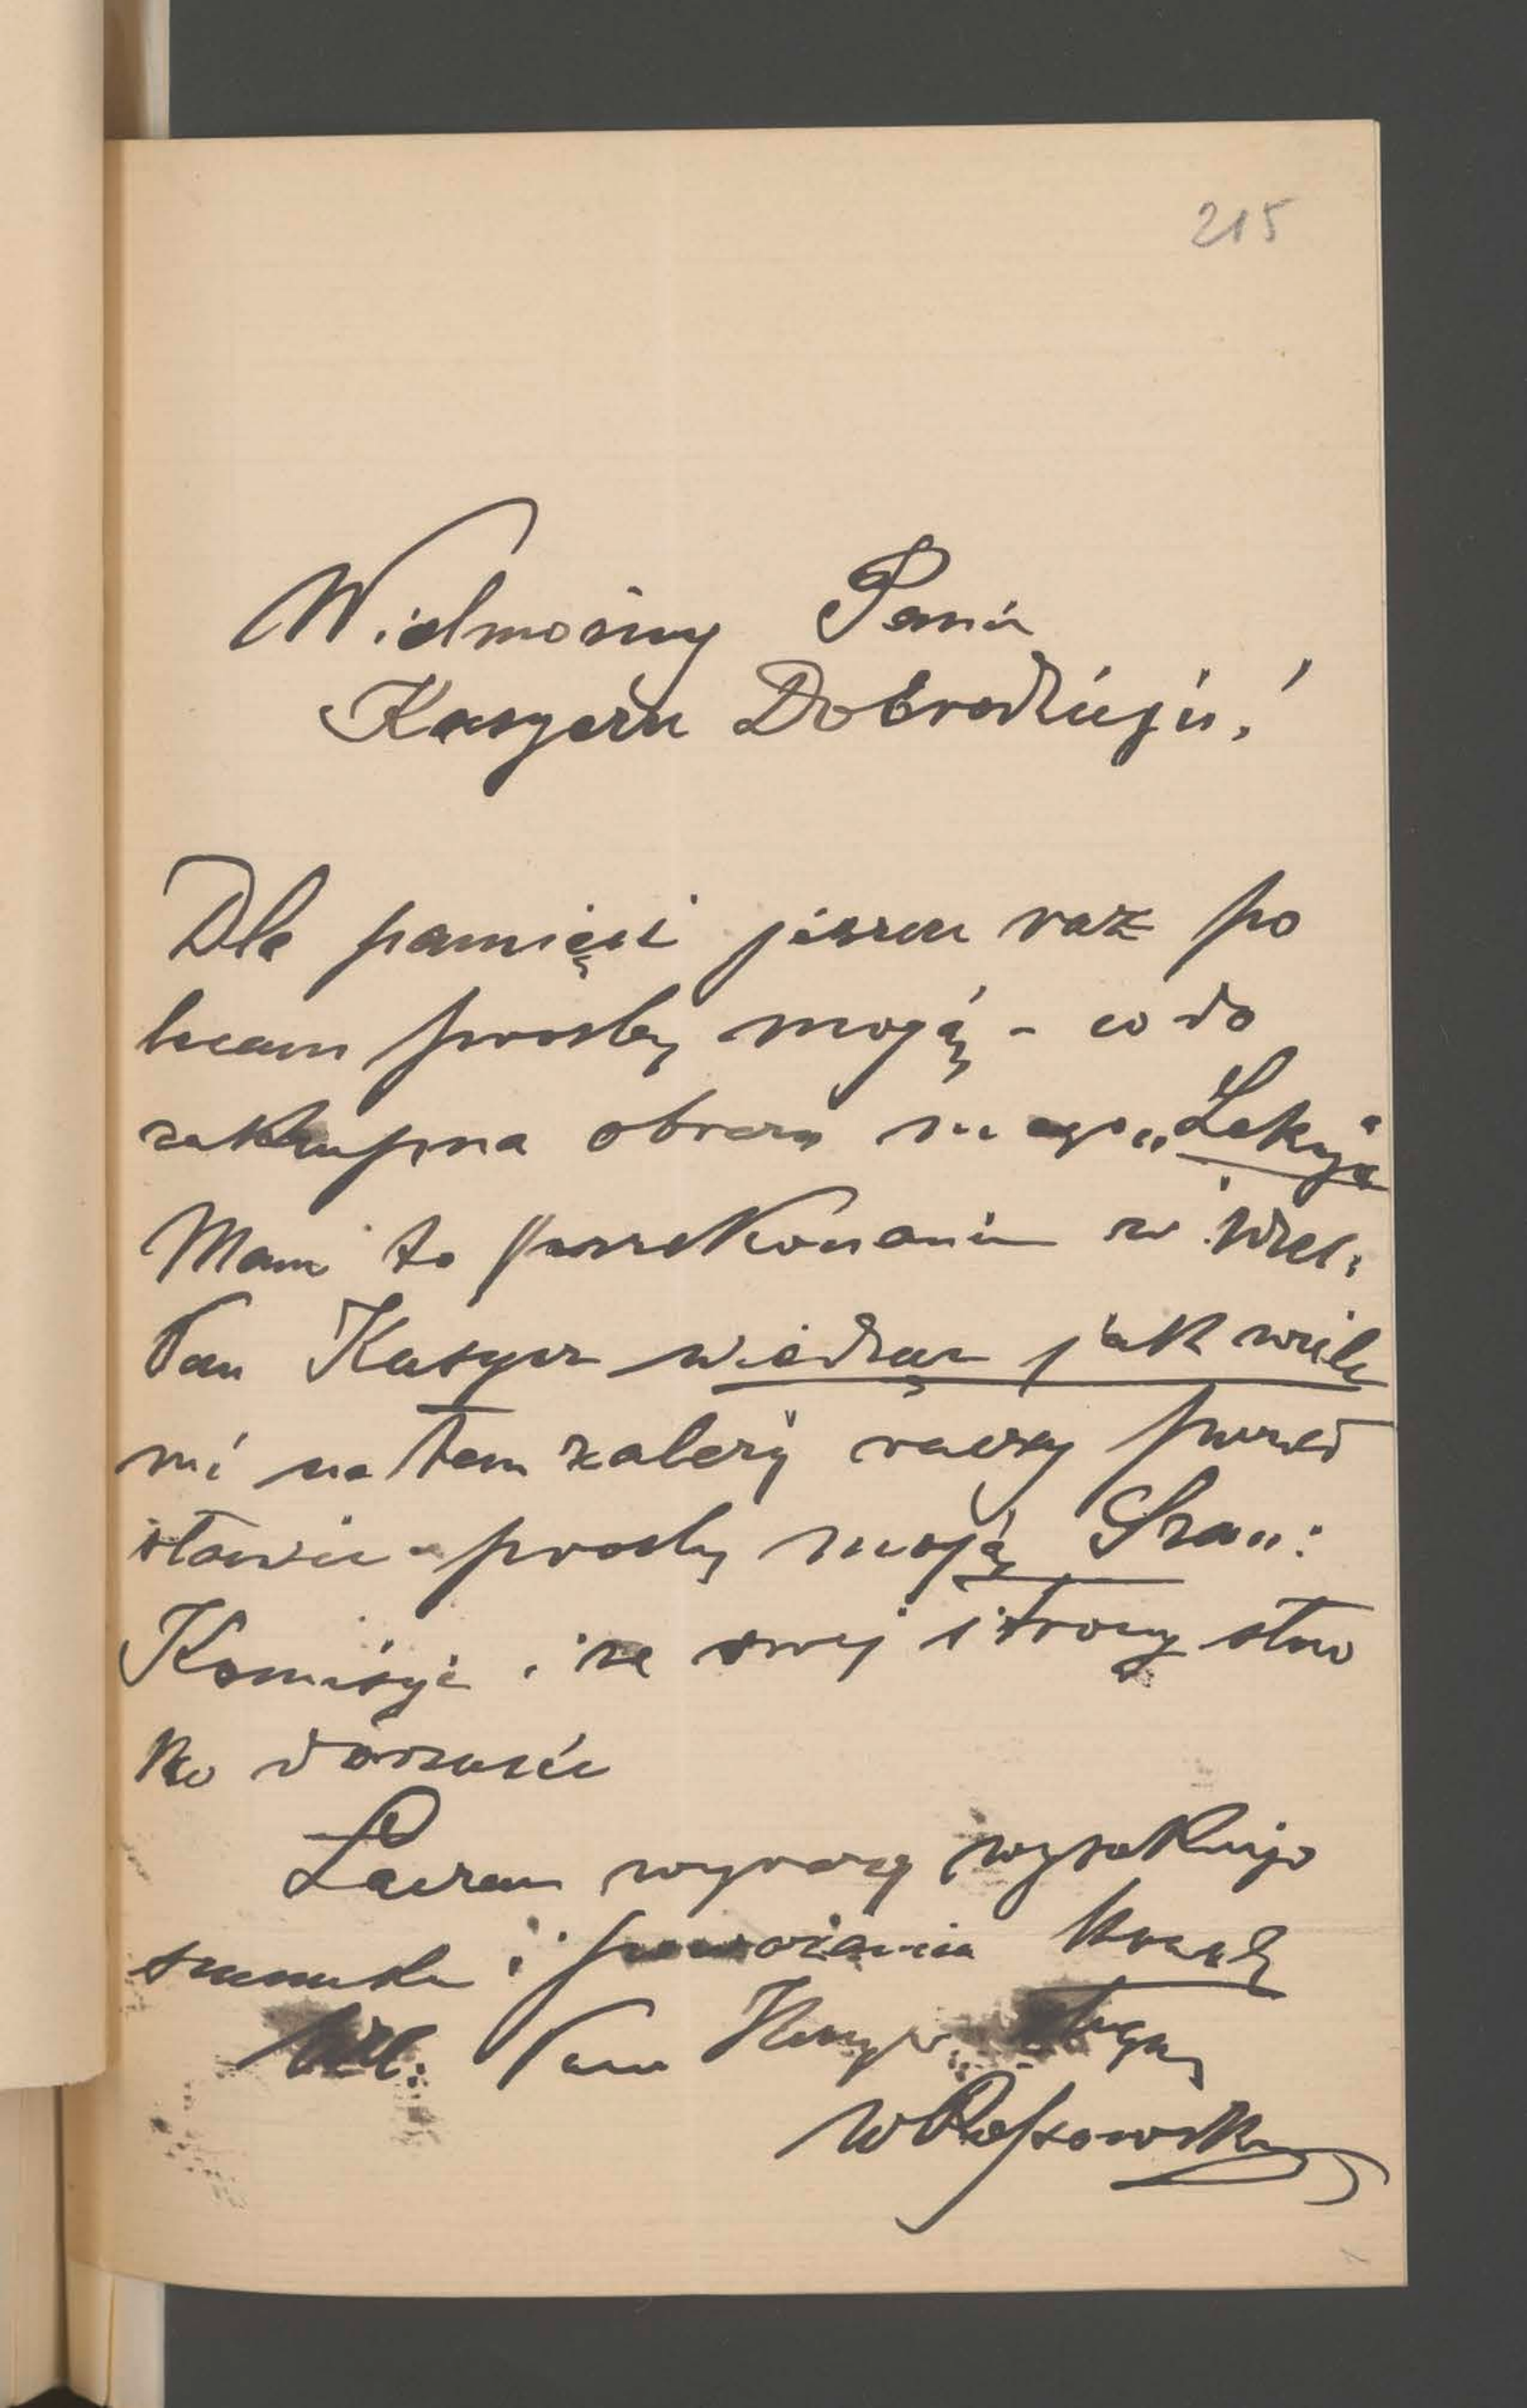 215
Wielmożny Panie
Kasyeru Dobrodzieju!
Dla pamięci jeszcze raz po
lecam prośbę moją - co do
zakupna obrazu mego „Lekcja
Mam to przekonanie że Wiel:
Pan Kasyer wiedząc jak wiele
mi na tem zależy raczy przed
stawić prośbę moją Szan:
Komisyi i ze swej strony słów
ko dorzucić
Łączam wyrazy wysokiego
szacunku i poważania kreślę
Wiel: Pana Kasyera sługa
W Rossowski